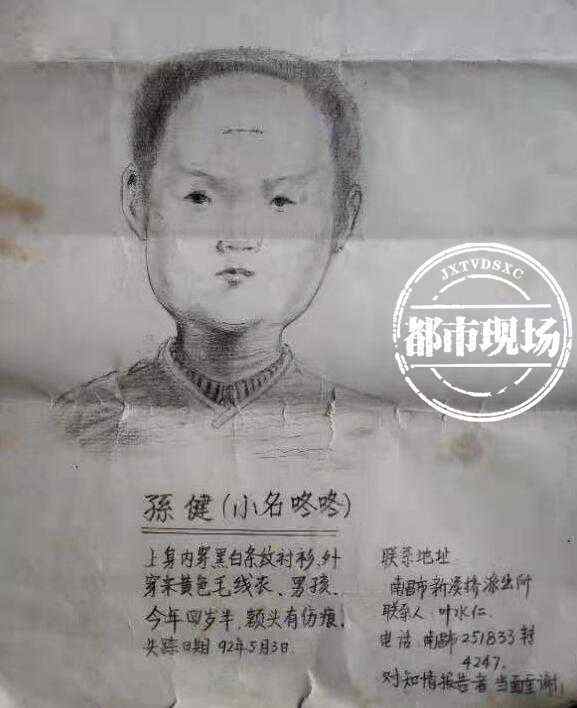 JXTVDSXC
都市现场
孫健(小名咚咚)
上身内穿黑白条纹衬衫.外
穿米黄色毛线衣、男孩、
今年四岁半、额头有伤痕,
失踪日期 92年5月3日
联系地址
南昌市新溪桥派出所
联系人 叶水仁
电话 南昌市251833转
4247.
对知情报告者 当面重谢!